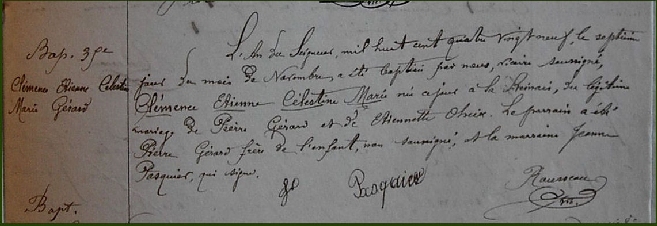 Bap. 35e
Clémence Etienne Célestine
Marie Gérard
L'An du Seigneur, mil huit cent quatre vingt neuf, le septième
jour du mois de Novembre, a été baptisée par nous, vicaire soussigné,
Clémence Etienne Célestine Marie née ce jour à la, du légitime
mariage de Pierre Gérard et de Etiennette. Le parrain a été
Pierre Gérard frère de l'enfant, non soussigné, et la marraine Jeanne
Pasquier, qui signe.
Pasquier
Rousseau
vic.
Bapt.